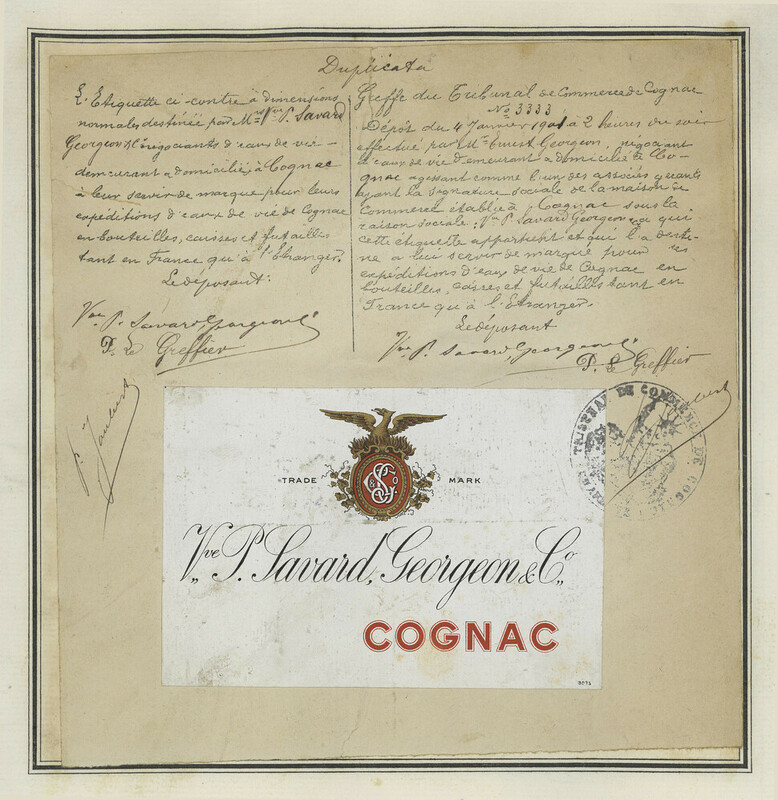 Duplicata
L'Etiquette ci-contre à dimensions
normales destinée par Mrs Vve P. Savard
Georgeon & Cie négociants d'eaux de vie
demeurant & domiciliés à Cognac
à leur servir de marque pour leurs
expéditions d'eaux de vie de Cognac
en bouteilles, caisses et futailles
tant en France qu'à l'Etranger.
Le déposant:
Vve P. Savard, Georgeon & Co
P. Le Greffier
Greffe du Tribunal de Commerce de Cognac
No 3333
Dépôt du 4 Janvier 1901 à 2 heures du soir
effectué par Mr Ernest Georgeon, négociant
d'eaux de vie demeurant & domicilié à Co-
gnac agissant comme l'un des associés gérants
ayant la signature sociale de la maison de
Commerce établie à Cognac sous la
raison sociale: Vve P. Savard Georgeon & Co à qui
cette étiquette appartient et qui l'a desti-
née à leur servir de marque pour ses
expéditions d'eaux de vie de Cognac en
bouteilles, caisses et futailles tant en
France qu'à l'Etranger.
Le déposant
Vve P. Savard, Georgeon & Co
P. Le Greffier
TRIBUNAL DE COMMERCE DE COGNAC
TRADE MARK
S G & Co
Vve P. Savard, Georgeon & Co
COGNAC